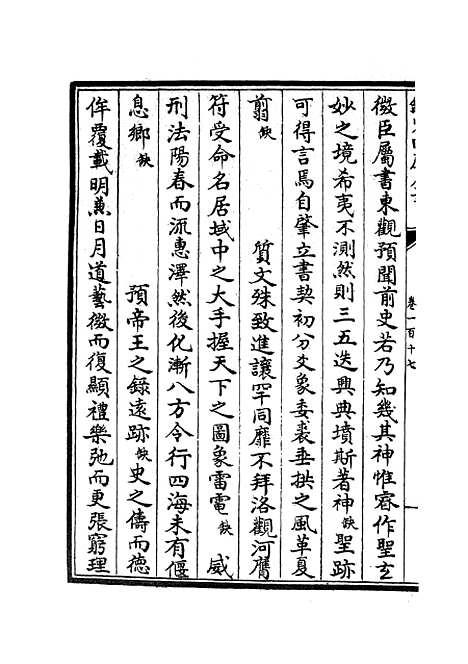 卷一百十七
微臣屬書東觀預聞前史若乃知幾其神惟睿作聖玄
妙之境希夷不測然則三五迭興典墳斯著神缺聖跡
可得言焉自肇立書契初分爻象委裘垂拱之風革夏
翦缺 質文殊致進讓罕同靡不拜洛觀河膺
符受命名居域中之大手握天下之圖象雷電缺 威
刑法陽春而流惠澤然後化漸八方令行四海未有偃
息鄉缺 預帝王之錄遠跡缺史之儔而德
侔覆載明兼日月道藝微而復顯禮樂弛而更張窮理